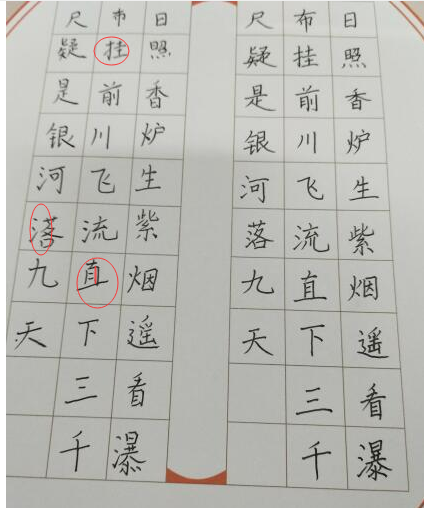 日照香炉生紫烟遥看瀑
布挂前川飞流直下三千
尺疑是银河落九天
日照香炉生紫烟遥看瀑
布挂前川飞流直下三千
尺疑是银河落九天